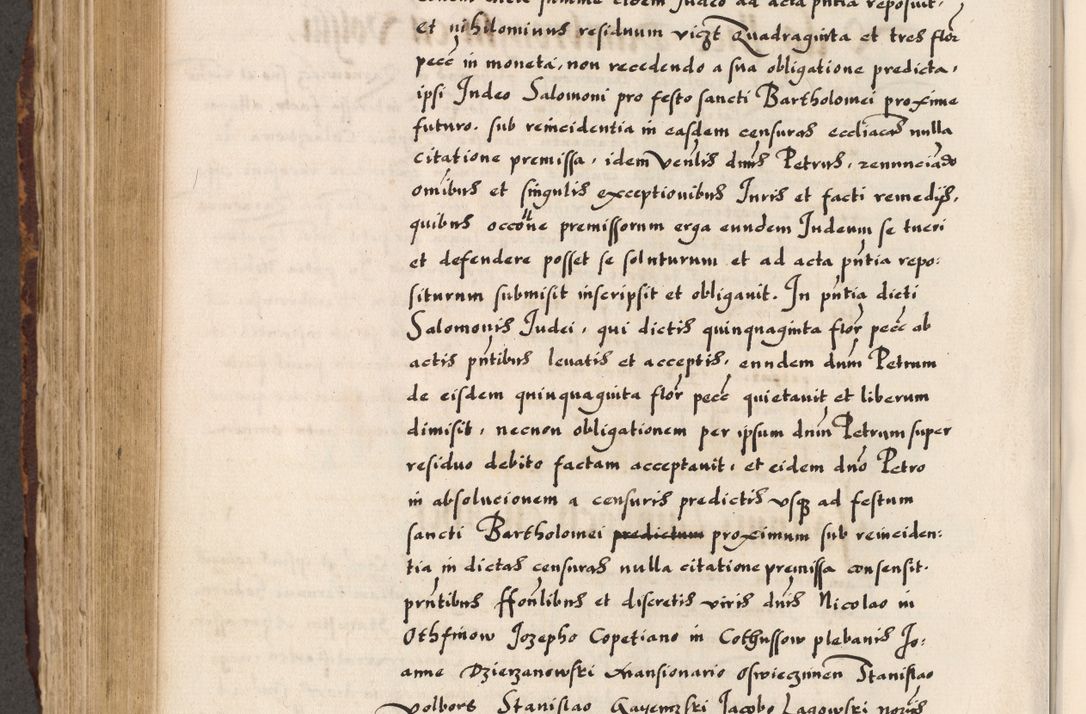 eidem Judeo ad acta pntia reposuit,
et nihilominus residuum viczt Quadraginta et tres flor
pecc in moneta, non recedendo a sua obligatione predicta,
ipsi Judeo Salomoni pro festo sancti Bartholomei proxime
futuro. sub reincidentia in easdem censuras eccliacas nulla
citatione premissa, idem Venlis dnus Petrus, renunciando
omibus et singulis exceptionibus Juris et facti remedijs,
quibus occone premissorum erga eundem Judeum se tueri
et defendere posset se soluturum et ad acta pntia repo:
siturum submisit inscripsit et obligauit. In pntia dicti
Salomonis Judei, qui dictis quinquaginta flor pecc ab
actis pntibus leuatis et acceptis, eundem dnm Petrum
de eisdem quinquaginta flor pecc quietauit et liberum
dimisit, necnon obligationem per ipsum dnm Petrum super
residuo debito factam acceptauit, et eidem dno Petro
in absolucionem a censuris predictis vsq ad festum
sancti Bartholomei predictum proximum sub reinciden:
tia in dictas censuras nulla citatione premissa consensit.
prntibus ffonlibus et discretis viris dnis Nicolao in
Othfinow Jozepho Copetiano in Cothussow plebanis Jo:
anne Dzierzanowski mansionario Oswieczimen Stanislao
Volbors Stanislao Jacobo Lagowski